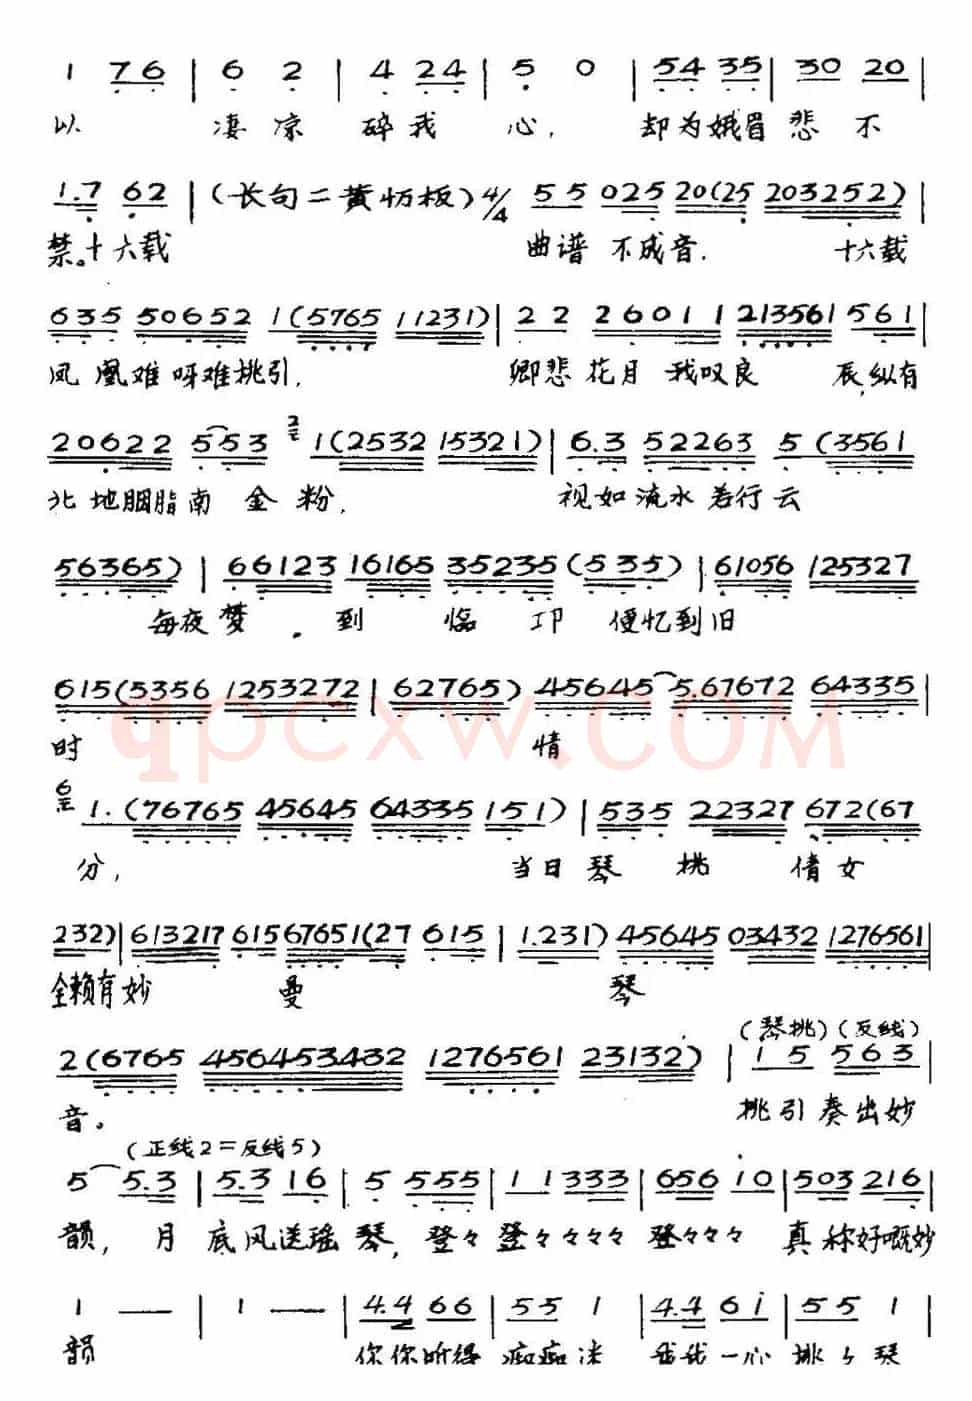 1 76 | 6 2 | 4 24 | 5 0 | 54 35 | 30 20 |
以 凄凉 碎我 心, 却为娥眉悲不
1.7 62 | (长句二黄忉板) 4/4 55 025 20(25 203252) |
禁。十六载 曲谱 不成音. 十六载
635 50652 1(5765 11231) | 22 26011 1213561 561 |
凤凰难呀难挑引, 卿悲花月 我叹良 辰,纵有
20622 553 2 1(2532 15321) | 6.3 52263 5 (3561
北地胭脂南金粉, 视如流水若行云
56365) | 66123 16165 35235 (535) | 61056 125327
每夜梦. 到临邛 便忆到旧
615(5356 1253272 | 62765) 45645 5.67672 64335 |
qpcxw.com
时 情
6 1.(76765 45645 64335 151) | 535 22327 672(67
分, 当日琴挑倩女
232) | 613217 61567651(27 615 | 1.231) 45645 03432 1276561 |
全赖有妙 曼 琴
(琴挑) (反线)
2(6765 456453432 1276561 23132) | 15 563 |
音。 挑引奏出妙
(正线2=反线5)
5 5.3 | 5.3 16 | 5 555 | 11333 | 656 i0 | 503 216 |
韻, 月 底风送瑶琴, 登々登々々々々 登々々々 真称好嘅妙
1 — | 1 — | 4.4 66 | 55 1 | 4.4 6i | 55 1
韻 你你听得痴痴迷 我我一心挑々琴